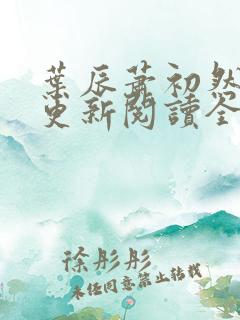 葉辰蕭初然
更新閱讀全
徐彤彤
未经同意禁止转载